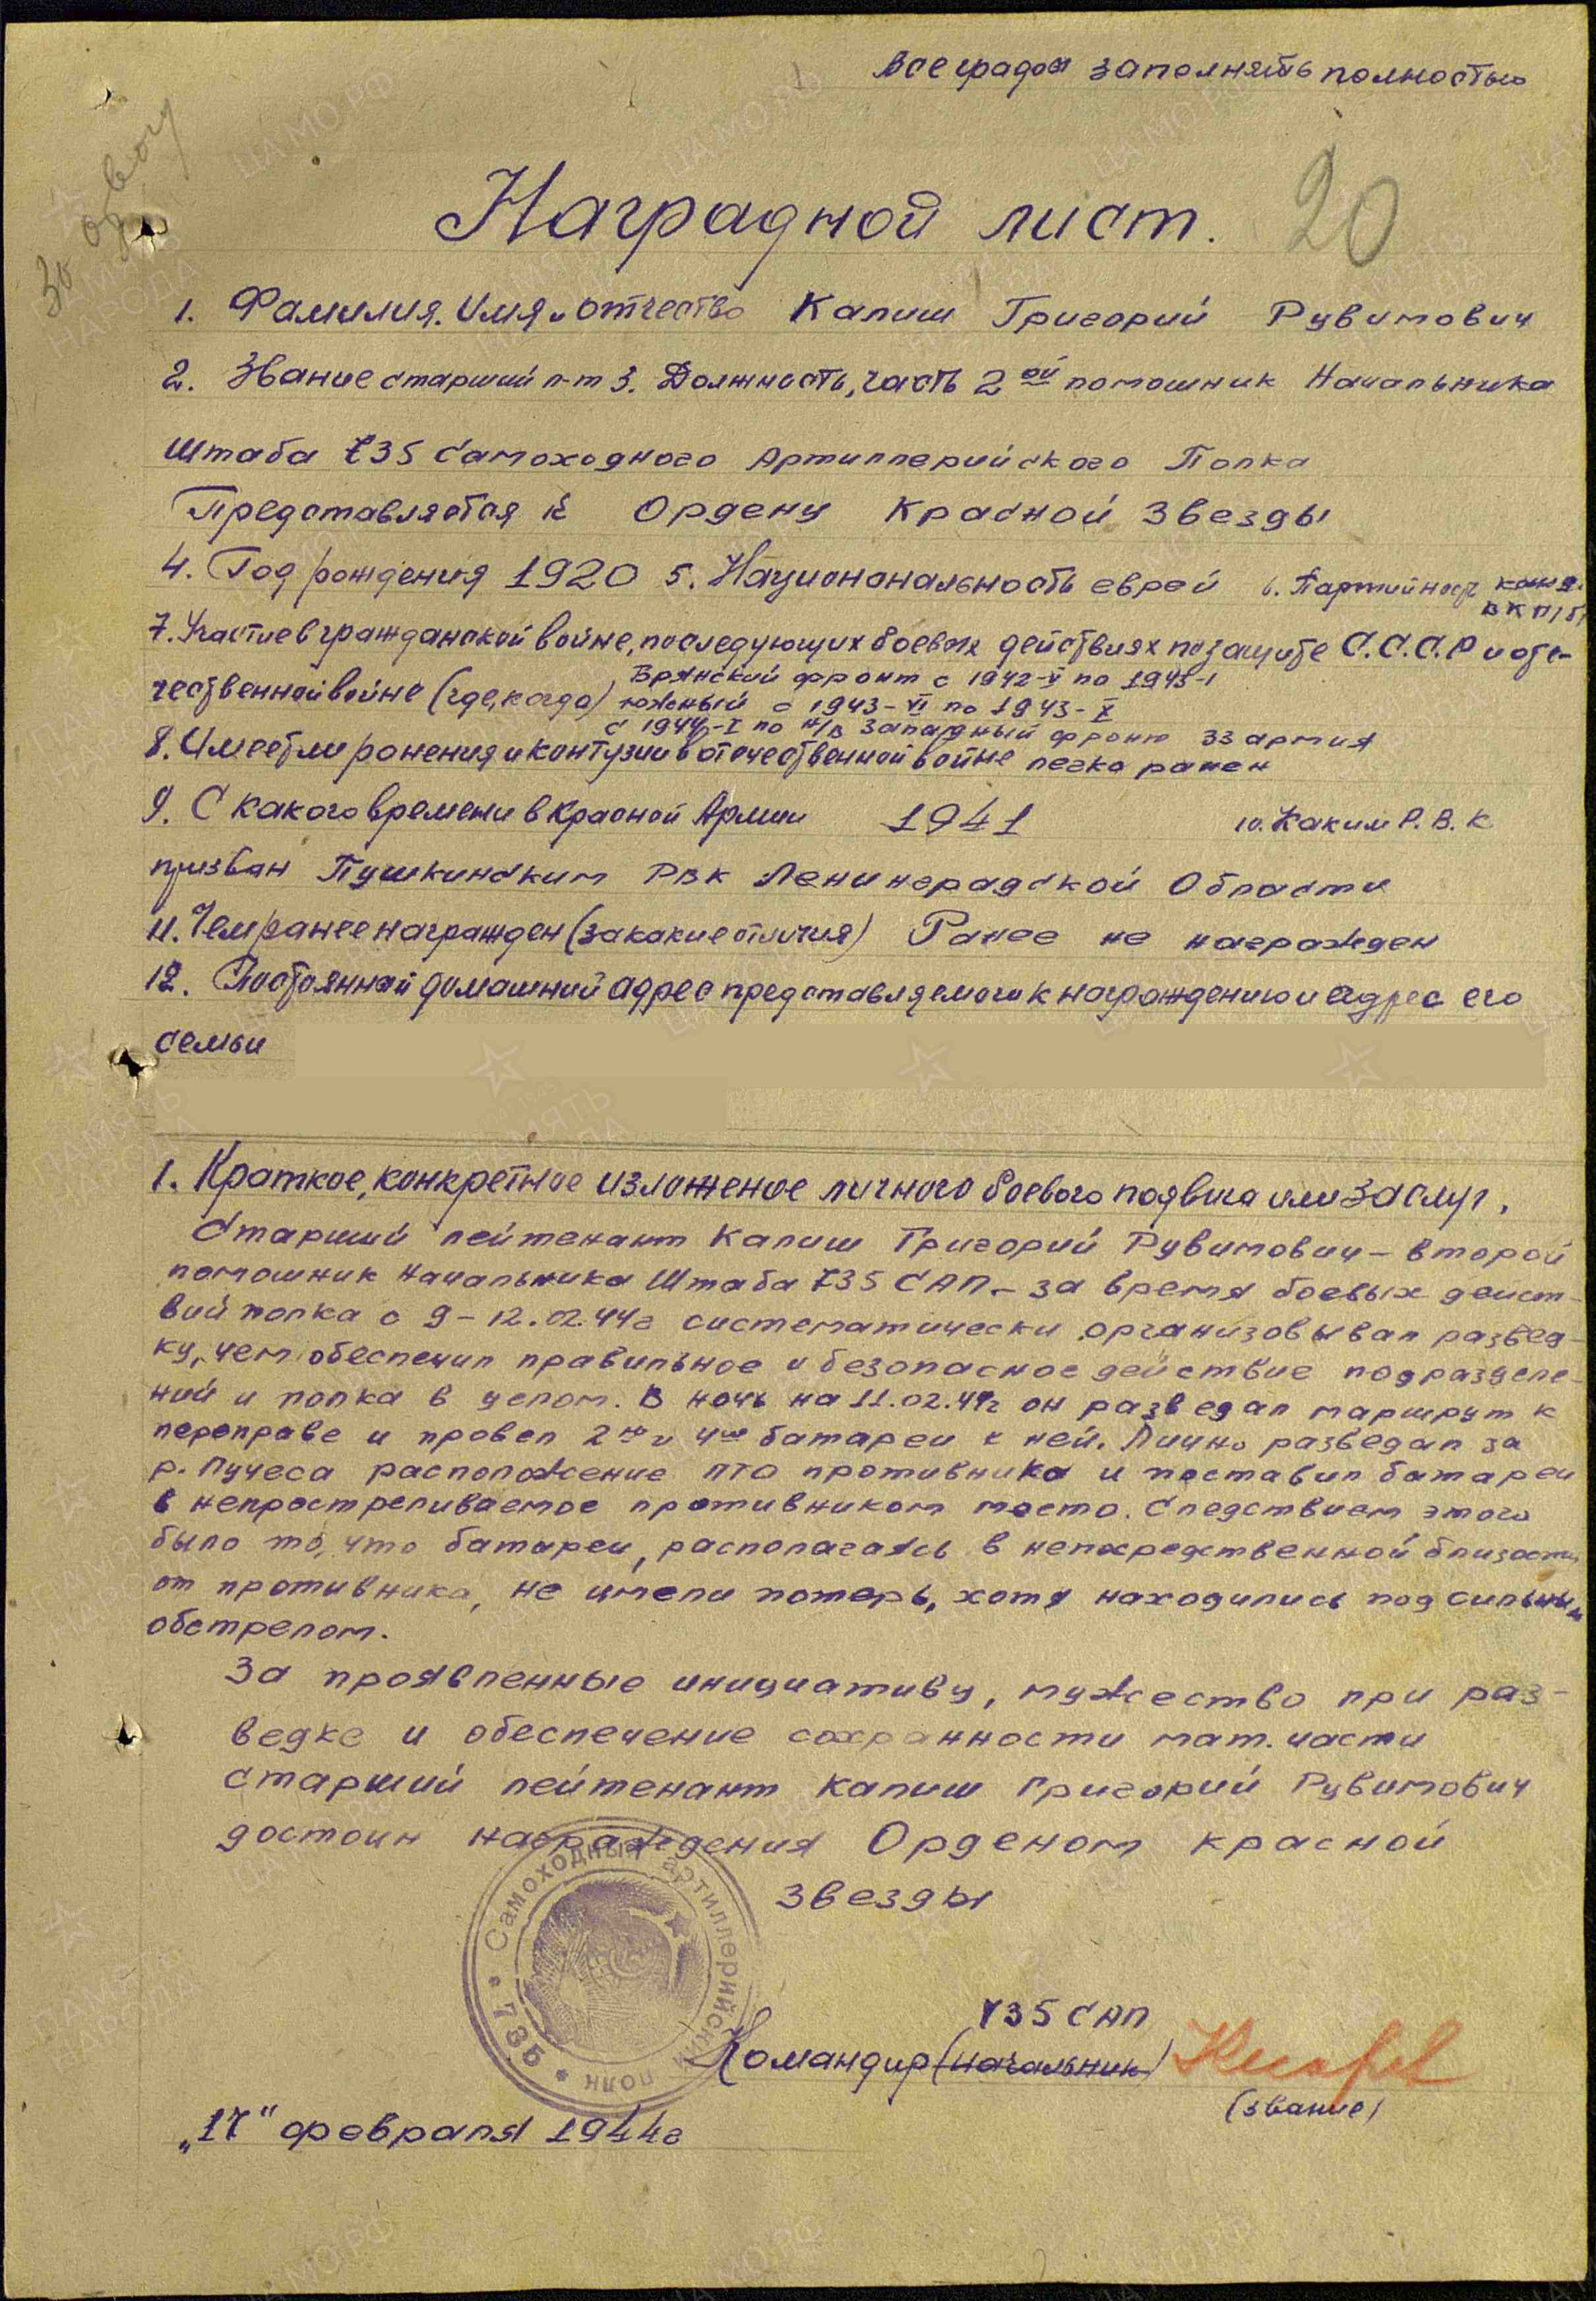 все графы заполнять полностью
Наградной лист. 20
1. Фамилия. Имя и отчество Капиш Григорий Рувимович
2. Звание старший л-т 3. Должность, часть 2ой помошник Начальника
Штаба 735 Самоходного Артиллерийского Полка
Представляется к Ордену Красной Звезды
4. Год рождения 1920 5. Национональность еврей 6. Партийность канд.
ВКП/б/
7. Участие в гражданской войне, последующих боевых действиях по защите С.С.С.Р и оте-
Брянский фронт с 1942-V по 1943-1
чественной войне (где, когда) южный с 1943-VI по 1943-X
с 1944-I по н/в Западный фронт 33 армия
8. Имеет ли ранения и контузии в отечественной войне легко ранен
9. С какого времени в Красной Армии 1941 10. Каким Р.В.К
призван Пушкинским РВК Ленинградской Области
11. Чем ранее награжден (за какие отличия) Ранее не награжден
12. Постоянный домашний адрес представляемого к награждению и адрес его
семьи
1. Краткое, конкретное изложение личного боевого подвига или заслуг.
Старший лейтенант Капиш Григорий Рувимович – второй
помошник Начальника Штаба 735 САП – за время боевых дейст-
вий полка с 9-12.02.44г систематически организовывал развед-
ку, чем обеспечил правильное и безопасное действие подразделе-
ний и полка в целом. В ночь на 11.02.44г он разведал маршрут к
переправе и провел 2ю и 4ю батареи к ней. Лично разведал за
р. Лучеса расположение ПТО противника и поставил батареи
в непростреливаемое противником место. Следствием этого
было то, что батареи, располагаясь в непосредственной близости
от противника, не имели потерь, хотя находились под сильным
обстрелом.
За проявленные инициативу, мужество при раз-
ведке и обеспечение сохранности мат. части
старший лейтенант Капиш Григорий Рувимович
достоин награждения Орденом красной
звезды
Самоходный артиллерийский полк * 735 *
735 САП
Командир (начальник)
(звание)
„17“ февраля 1944г